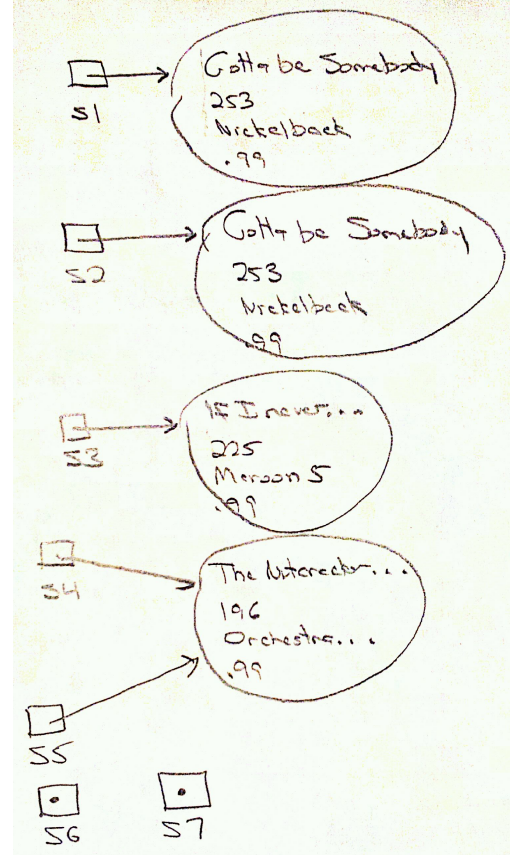 S1
Gotta be Somebody
253
Nickelback
.99
S2
Gotta be Somebody
253
Nickelback
.99
S3
If I never...
225
Maroon 5
.99
S4
The Nutcracker...
196
Orchestra...
.99
S5
S6
S7